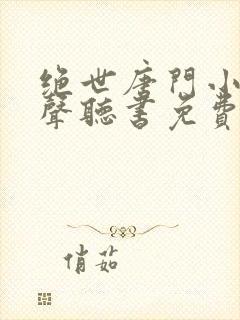 绝世唐門小
聲聽書免費
俏茹